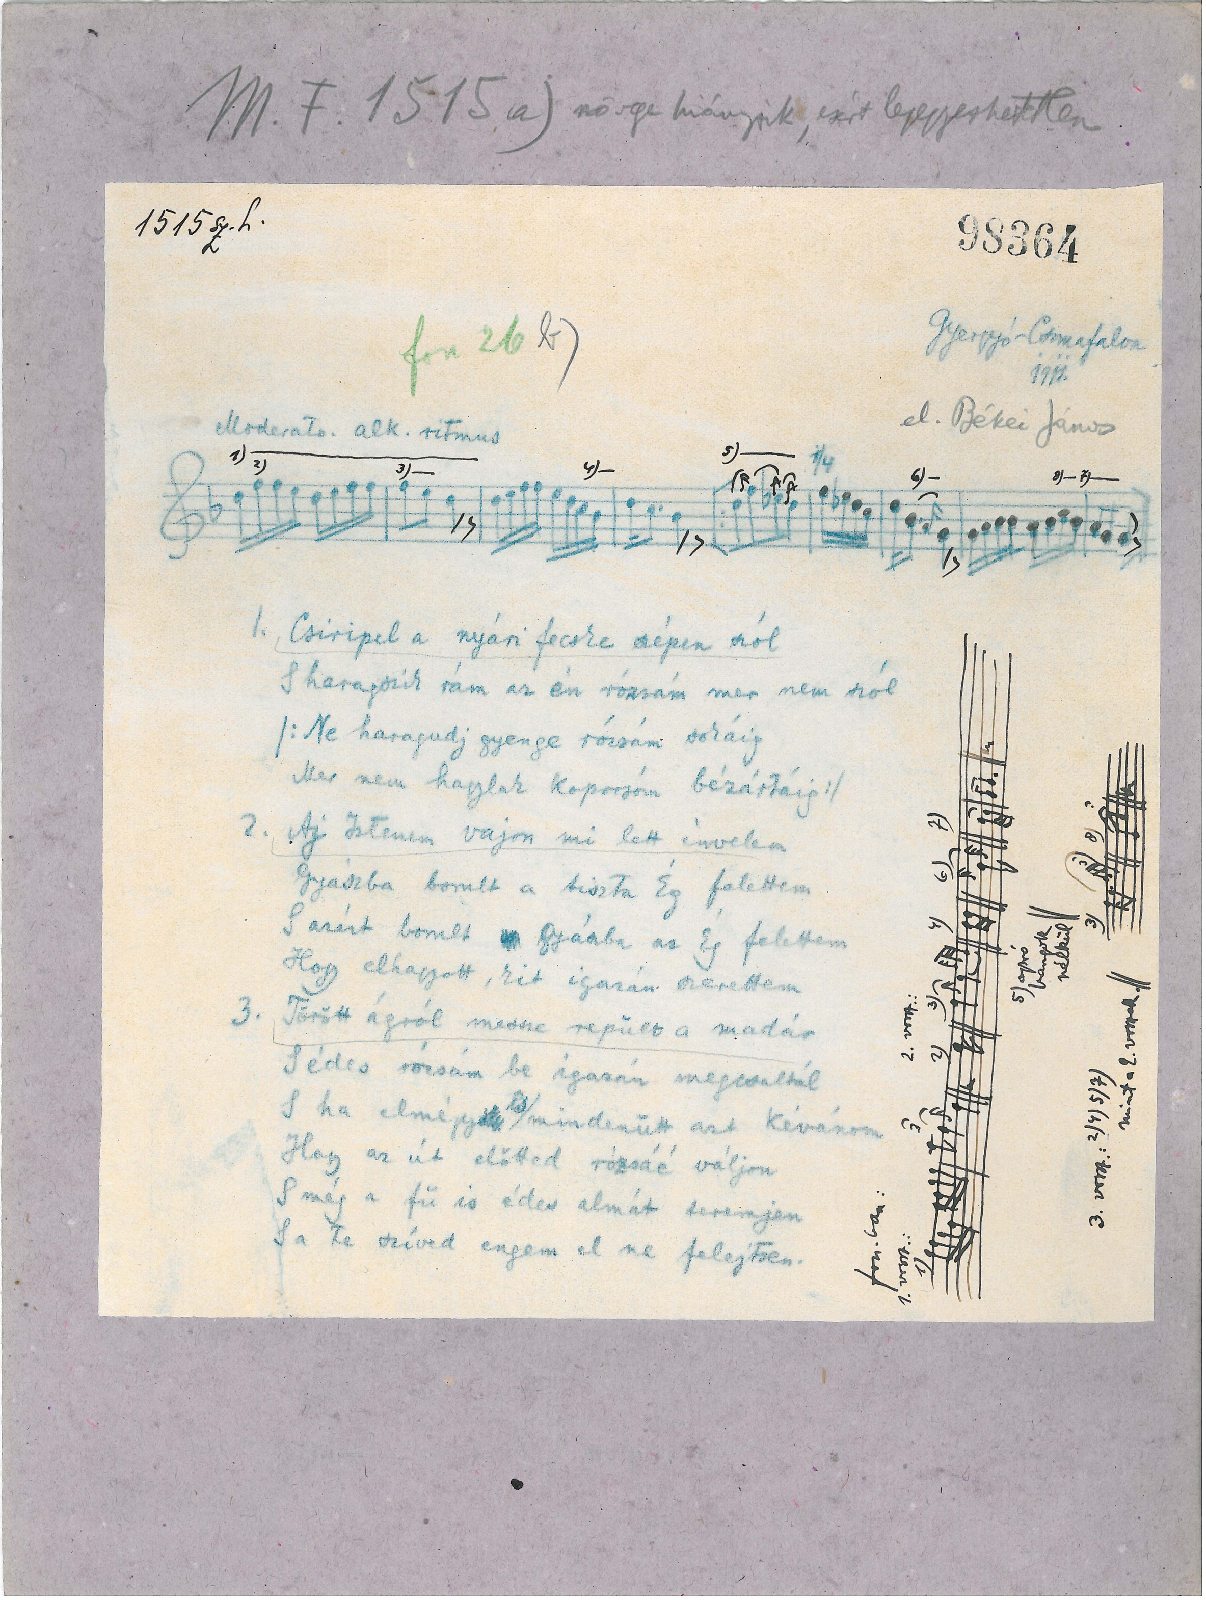 M. F. 1515 a) vége hiányzik, ezért lejegyezhetetlen
1515 sz. h.
98364
fon 26 b)
Gyergyó-Csomafalva
1911.
el. Békei János
Moderato. alk. ritmus
1) 2) 3) 4) 5) 1/4 6) 8) 7)
1. Csiripel a nyári fecske szépen szól
S haragszik rám az én rózsám mer nem szól
/: Ne haragudj gyenge rózsám sokáig
Mer nem hagylak koporsóm bézártáig :/
2. Aj Istenem vajon mi lett énvelem
Gyászba borult a tiszta Ég felettem
S azért borult gyászba az Ég felettem
Hogy elhagyott, kit igazán szerettem
3. Törött ágról messze repült a madár
S édes rózsám be igazán megcsaltál
S ha elmégy is mindenütt azt kévánom
Hogy az út előtted rózsáé váljon
S még a fű is édes almát teremjen
S a te szíved engem el ne felejtsen.
fon.-szám:
1. versz.:
1)
3)
2. versz.:
2) 3) 4) 6) 7)
5) apró
hangok
nélkül
3) 8)
3. versz.: 2) 4) 5) 7)
mint a 2. versszak